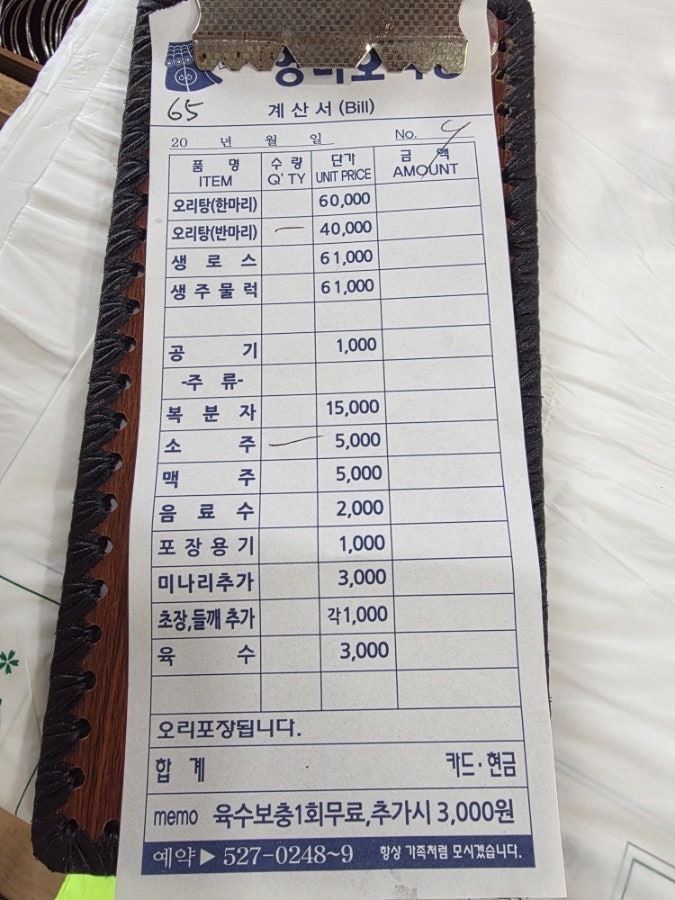 65
계산서(Bill)
20 년 월 일 No. 4
품 명 수량 단가 금 액
ITEM Q'TY UNIT PRICE AMOUNT
오리탕(한마리) 60,000
오리탕(반마리) ㅡ 40,000
생 로 스 61,000
생 주 물 럭 61,000
공 기 1,000
-주 류-
복 분 자 15,000
소 주 ㅡ 5,000
맥 주 5,000
음 료 수 2,000
포 장 용 기 1,000
미나리추가 3,000
초장,들깨 추가 각1,000
육 수 3,000
오리포장됩니다.
합 계 카드·현금
memo 육수보충1회무료,추가시 3,000원
예약▶ 527-0248~9 항상 가족처럼 모시겠습니다.